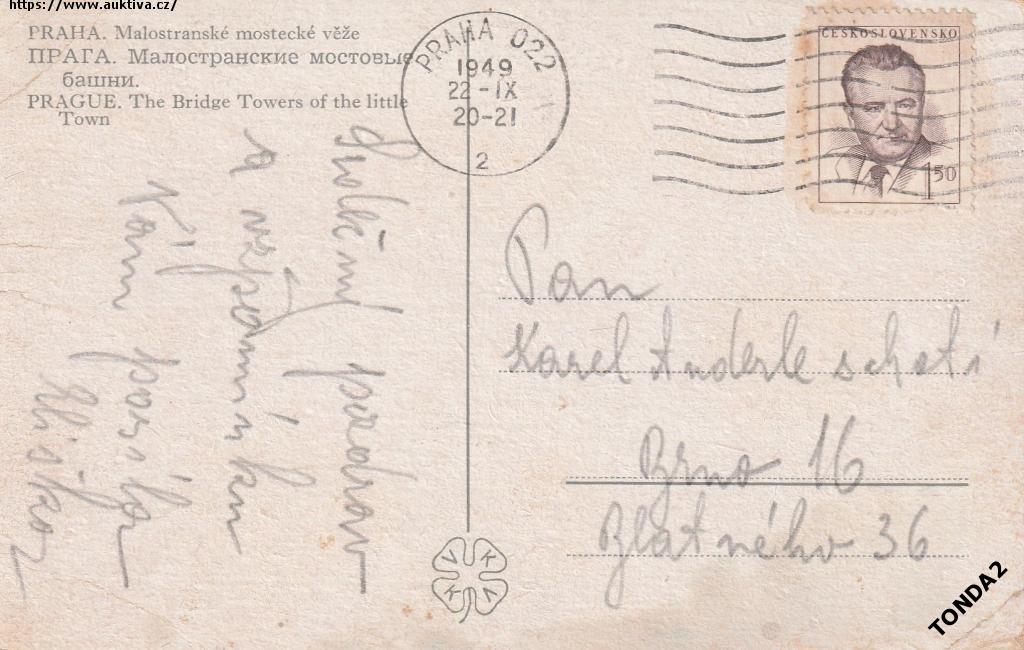 https://www.auktiva.cz/
PRAHA. Malostranské mostecké věže
ПРАГА. Малостранские мостовые
башни.
PRAGUE. The Bridge Towers of the little
Town
PRAHA 022
1949
22-IX
20-21
2
ČESKOSLOVENSKO
1 50
Srdečný pozdrav
a vzpomínku
Vám posílá
Pan
Karel Anderle s chotí
Brno 16
Blatného 36
V K K K
TONDA2